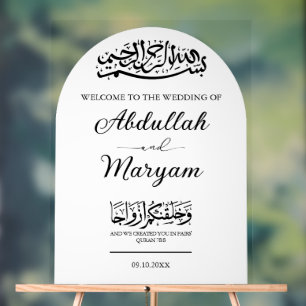 بسم الله الرحمن الرحيم
WELCOME TO THE WEDDING OF
Abdullah
and
Maryam
وَخَلَقْنَاكُمْ أَزْوَاجًا
AND WE CREATED YOU IN PAIRS'
QURAN 78:8
09.10.20XX